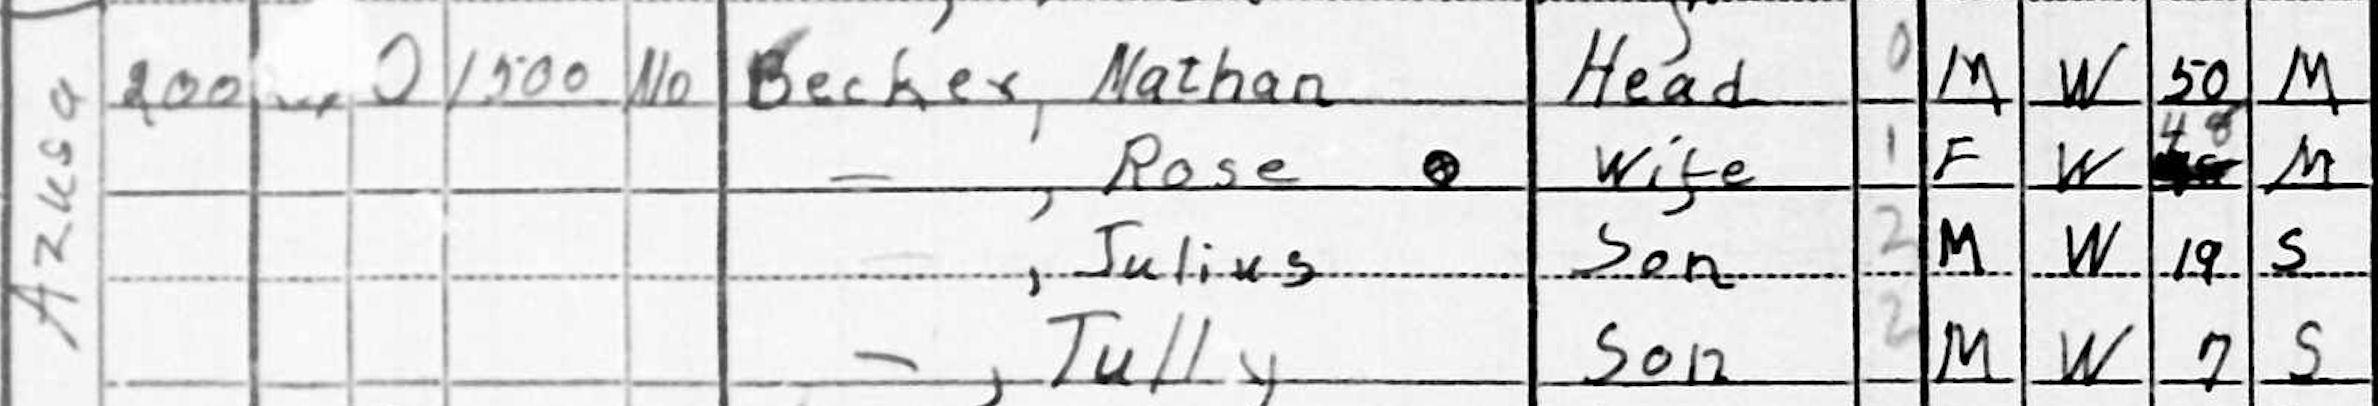 Azusa
200 O 1500 No Becker, Nathan Head 0 M W 50 M
—, Rose ⊗ Wife 1 F W 48 M
—, Julius Son 2 M W 19 S
—, Tully Son 2 M W 7 S